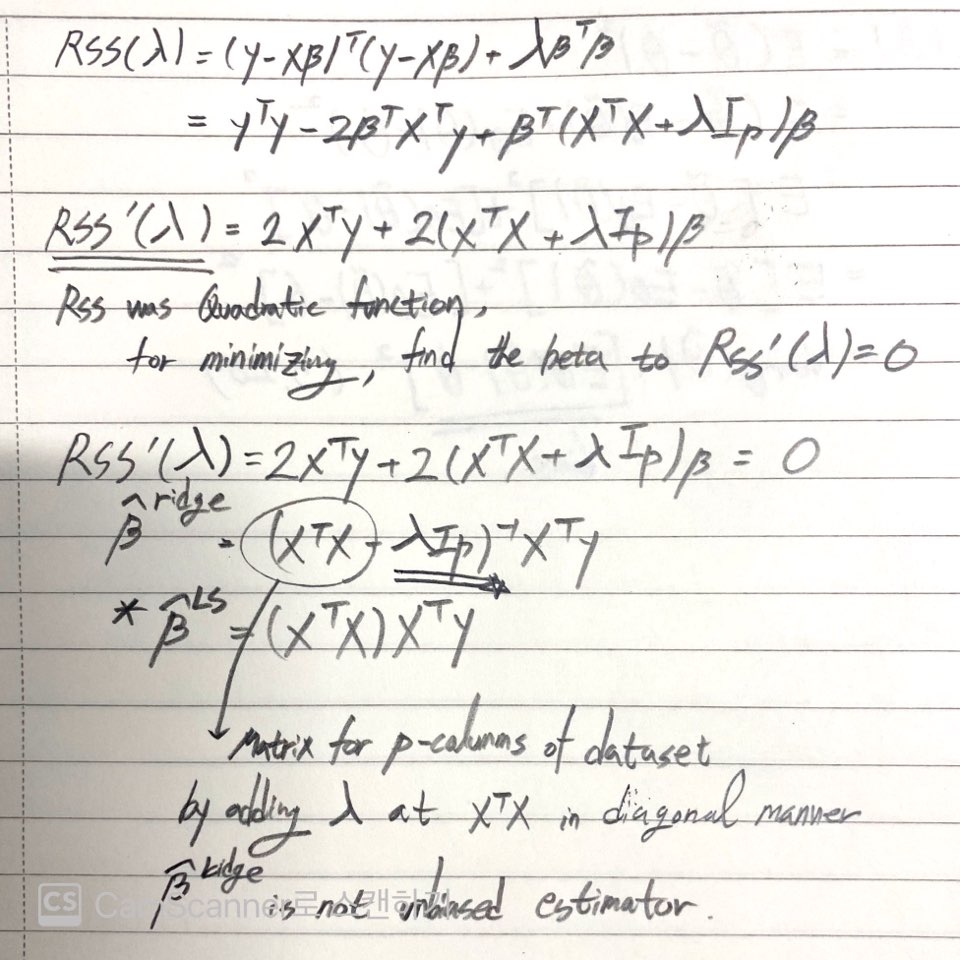 RSS(λ) = (y-Xβ)ᵀ(y-Xβ) + λβᵀβ
= yᵀy - 2βᵀXᵀy + βᵀ(XᵀX + λIp)β
RSS'(λ) = 2XᵀY + 2(XᵀX + λIp)β
Rss was Quadratic function,
for minimizing, find the beta to Rss'(λ) = 0
RSS'(λ) = 2XᵀY + 2(XᵀX + λIp)β = 0
β̂ ridge = (XᵀX - λIp)⁻¹XᵀY
* β̂ LS = (XᵀX)XᵀY
Matrix for p-columns of dataset
by adding λ at XᵀX in diagonal manner
β̂ ridge is not unbiased estimator.
CS CamScanner로 스캔하기